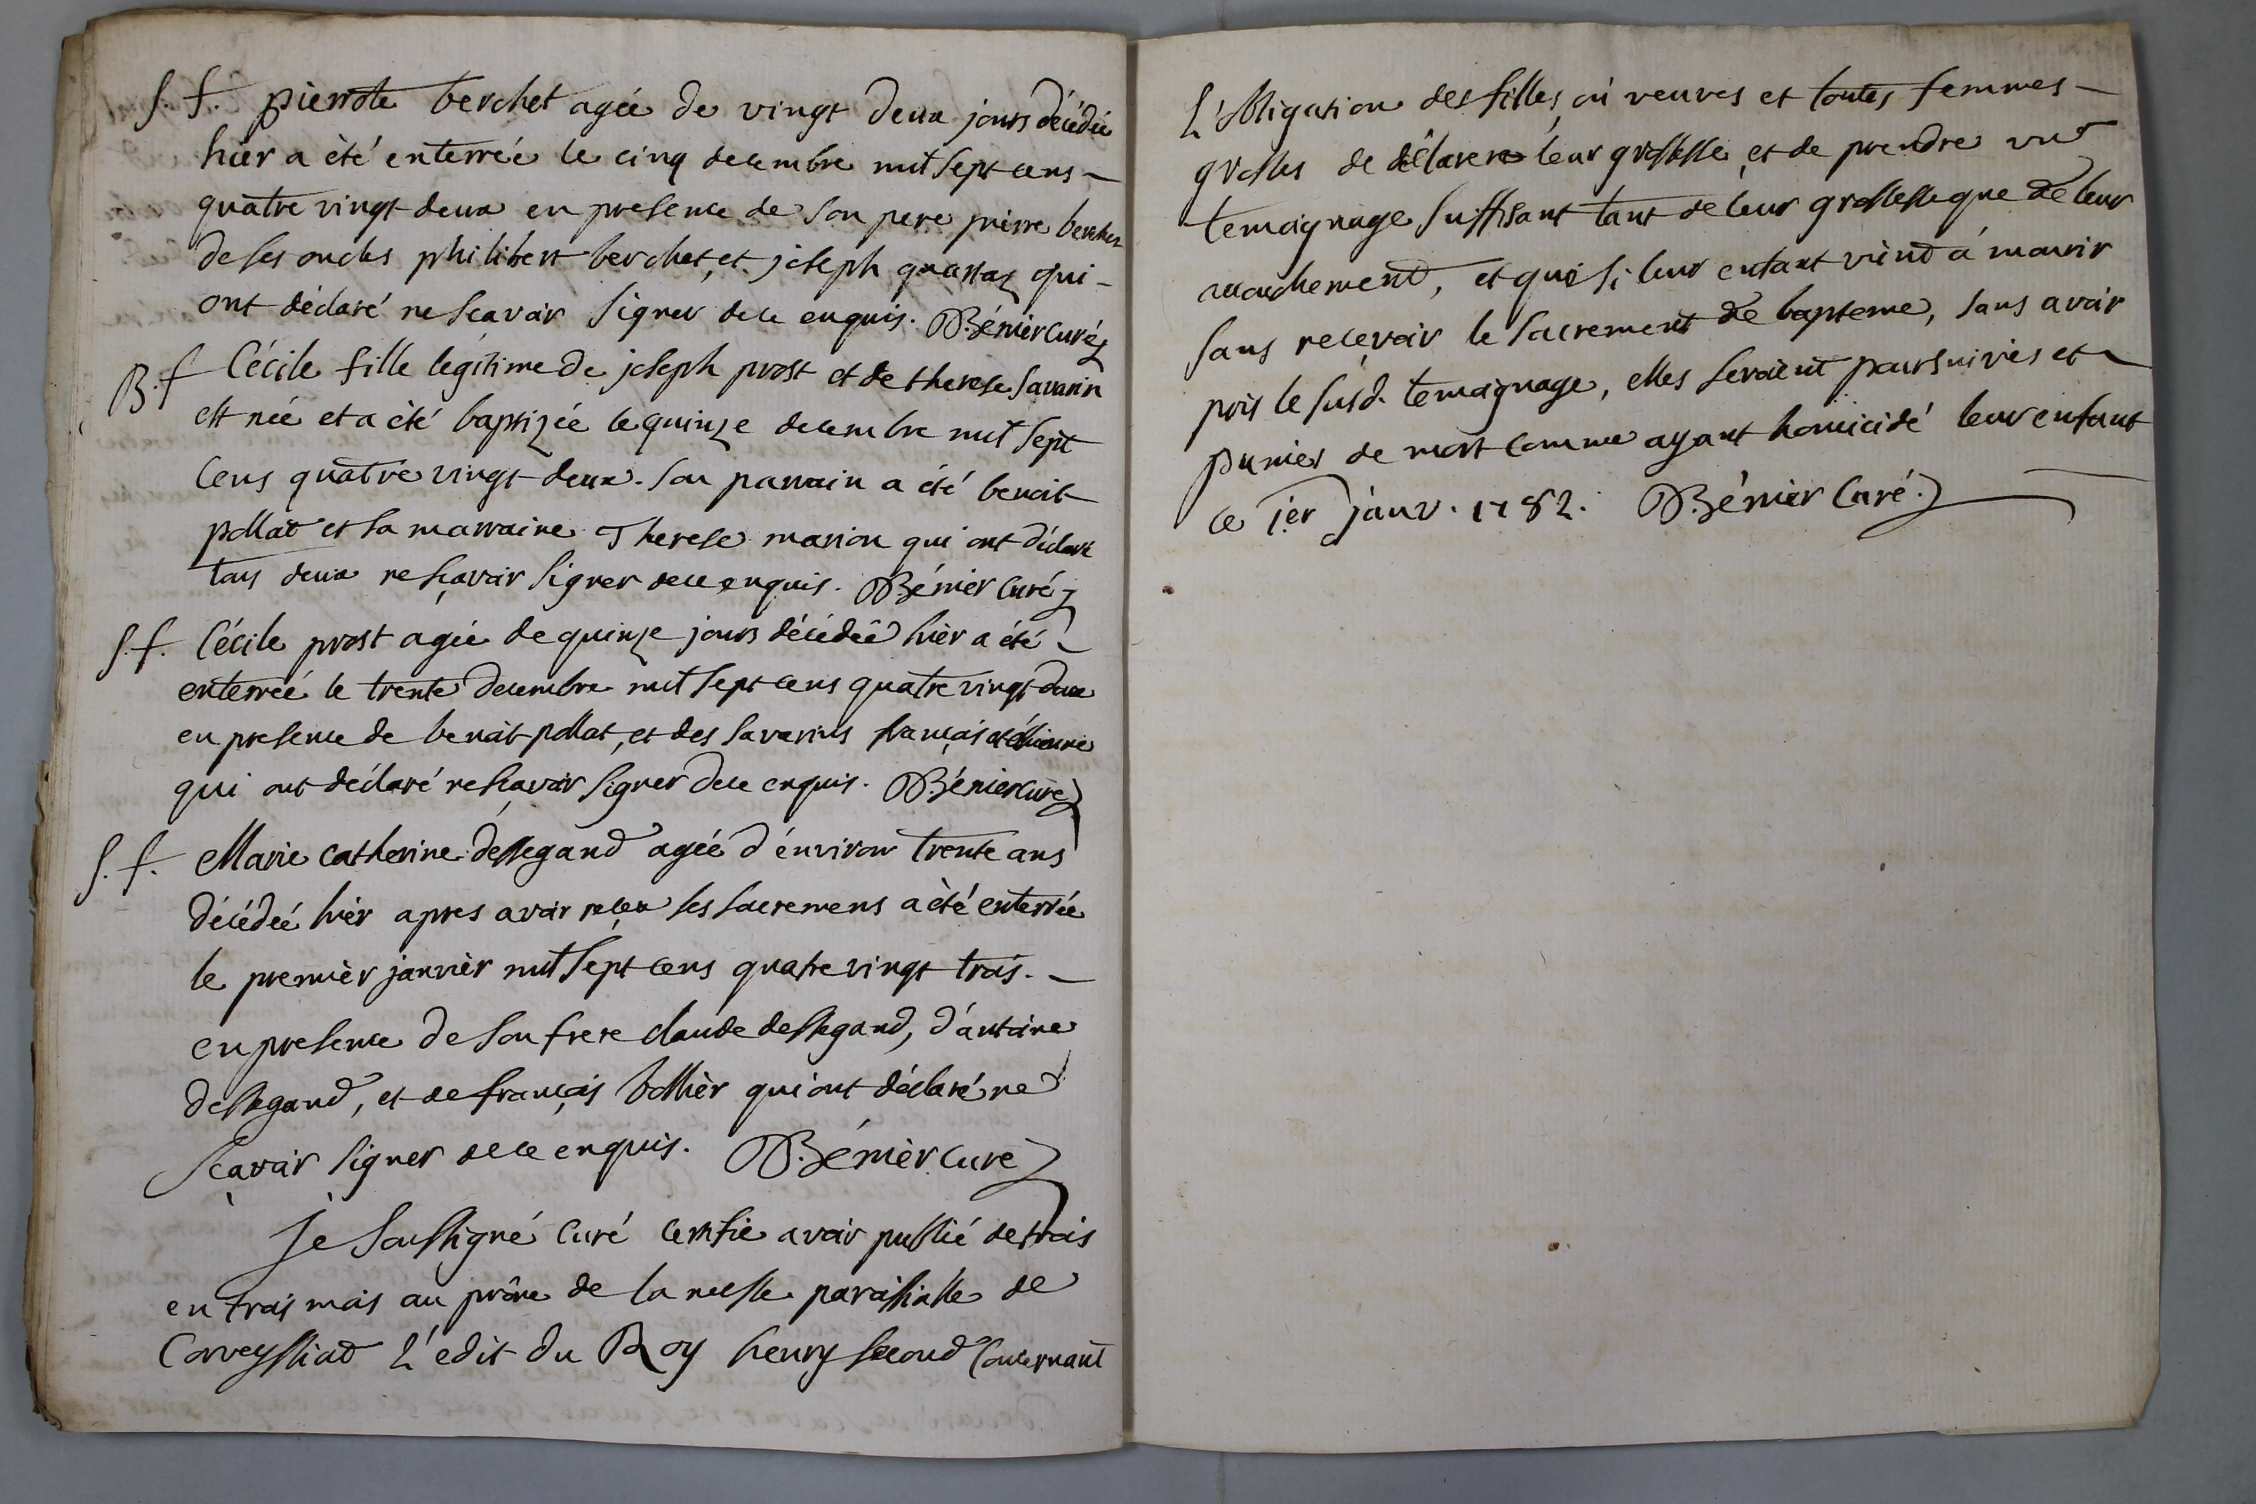 S. f. pierrote berchet agée de vingt deux jours décédée
hier a été enterrée le cinq decembre mil sept cens
quatre vingt deux en presence de son pere pierre berchet
de ses oncles philibert berchet, et joseph quassaz qui
ont déclaré ne scavoir signer de ce enquis. Bénier curé
B. f Cécile fille legitime de joseph prost et de therese Savarin
est née et a été baptizée le quinze decembre mil sept
cens quatre vingt deux. son parrain a été benoit
pollat et sa marraine Therese marion qui ont déclaré
tous deux ne sçavoir signer de ce enquis. Bénier Curé
S. f. Cécile prost agée de quinze jours décédée hièr a été
enterreé le trente decembre mil sept cens quatre vingt deux
en presence de benoit pollat, et des savarins françois et étienne
qui ont déclaré ne sçavoir signer de ce enquis. Bénier curé
S. f. Marie catherine dessegand agée d'énviron trente ans
décédeé hièr apres avoir reçeu ses sacremens a été enterrée
le premièr janvièr mil sept cens quatre vingt trois.
en presence de son frere claude dessegand, d'antoine
dessegand, et de françois bollièr qui ont déclaré ne
sçavoir signer de ce enquis. Bénièr Curé
Je soussigné Curé certifie avoir publié de trois
en trois mois au prône de la messe paroissialle de
Corveyssiad L'edit du Roy henry second Concernant
L'obligation des filles, où veuves et toutes femmes
grosses de déclarer leur grossesse, et de prendre un
temoignage suffisant tant de leur grossesse que de leur
acouchement, et que si leur enfant viend à mourir
sans reçevoir le sacrement de bapteme, sans avoir
pris le susd. temoignage, elles seroient poursuiviès et
punies de mort comme ayant homicidé leur enfant
ce 1er janv. 1782. Bénier Curé.